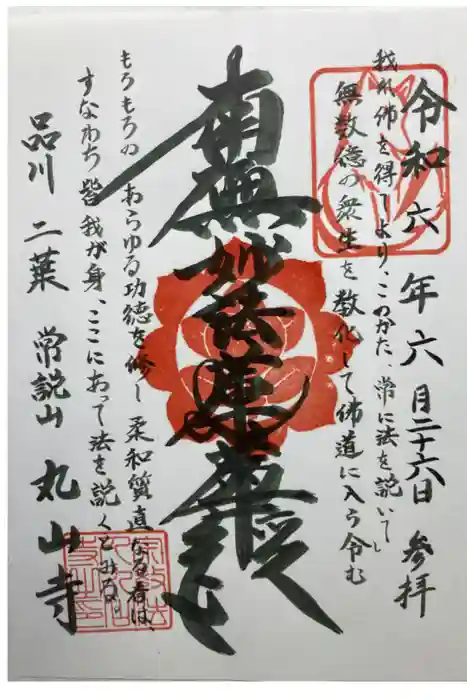 令和六年六月二十六日 参拝
我れ佛を得てより、このかた、常に法を説いて
無数億の衆生を教化して佛道に入ら令む
南無妙法蓮華経
もろもろの あらゆる功徳を修し 柔和質直なる者は、
すなわち皆 我が身、ここにあって法を説くとみる。
品川 二葉 常説山 丸山寺